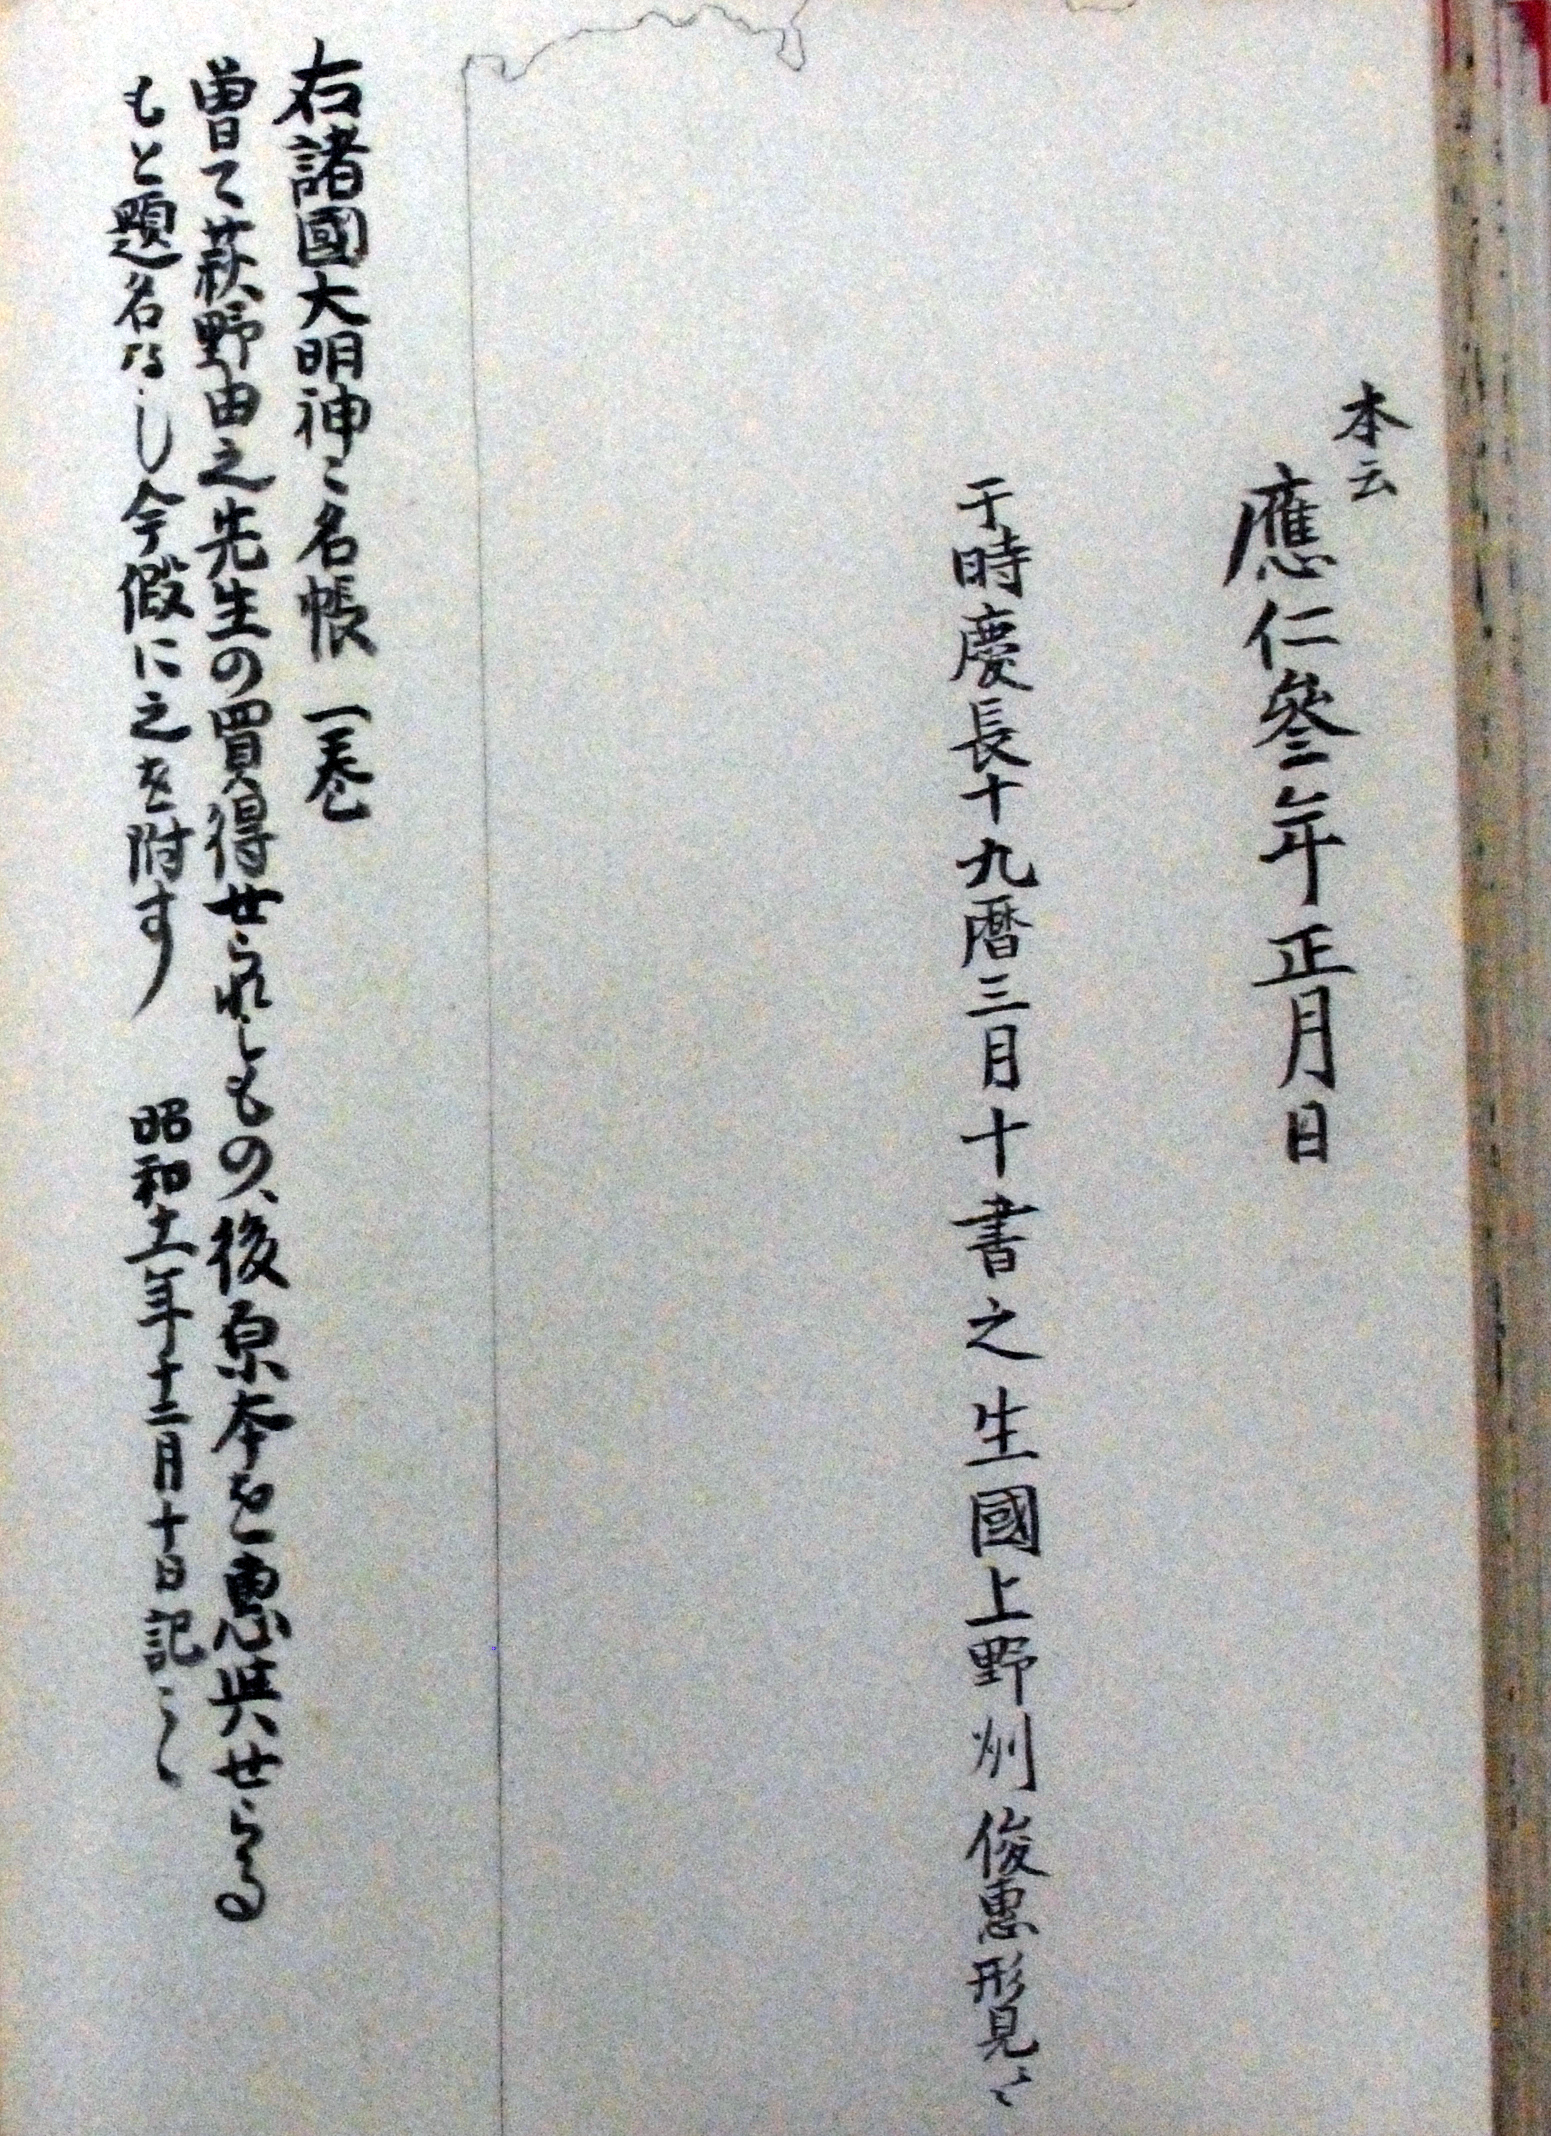 本云
應仁參年正月日
于時慶長十九暦三月十書之生國上野州俊惠形見ニ
右諸國大明神ニ名帳 一巻
曽て萩野由之先生の買得せられしもの、後原本を惠与せらる
もと題名なし今假に之を附す 昭和十一年十二月十日記之